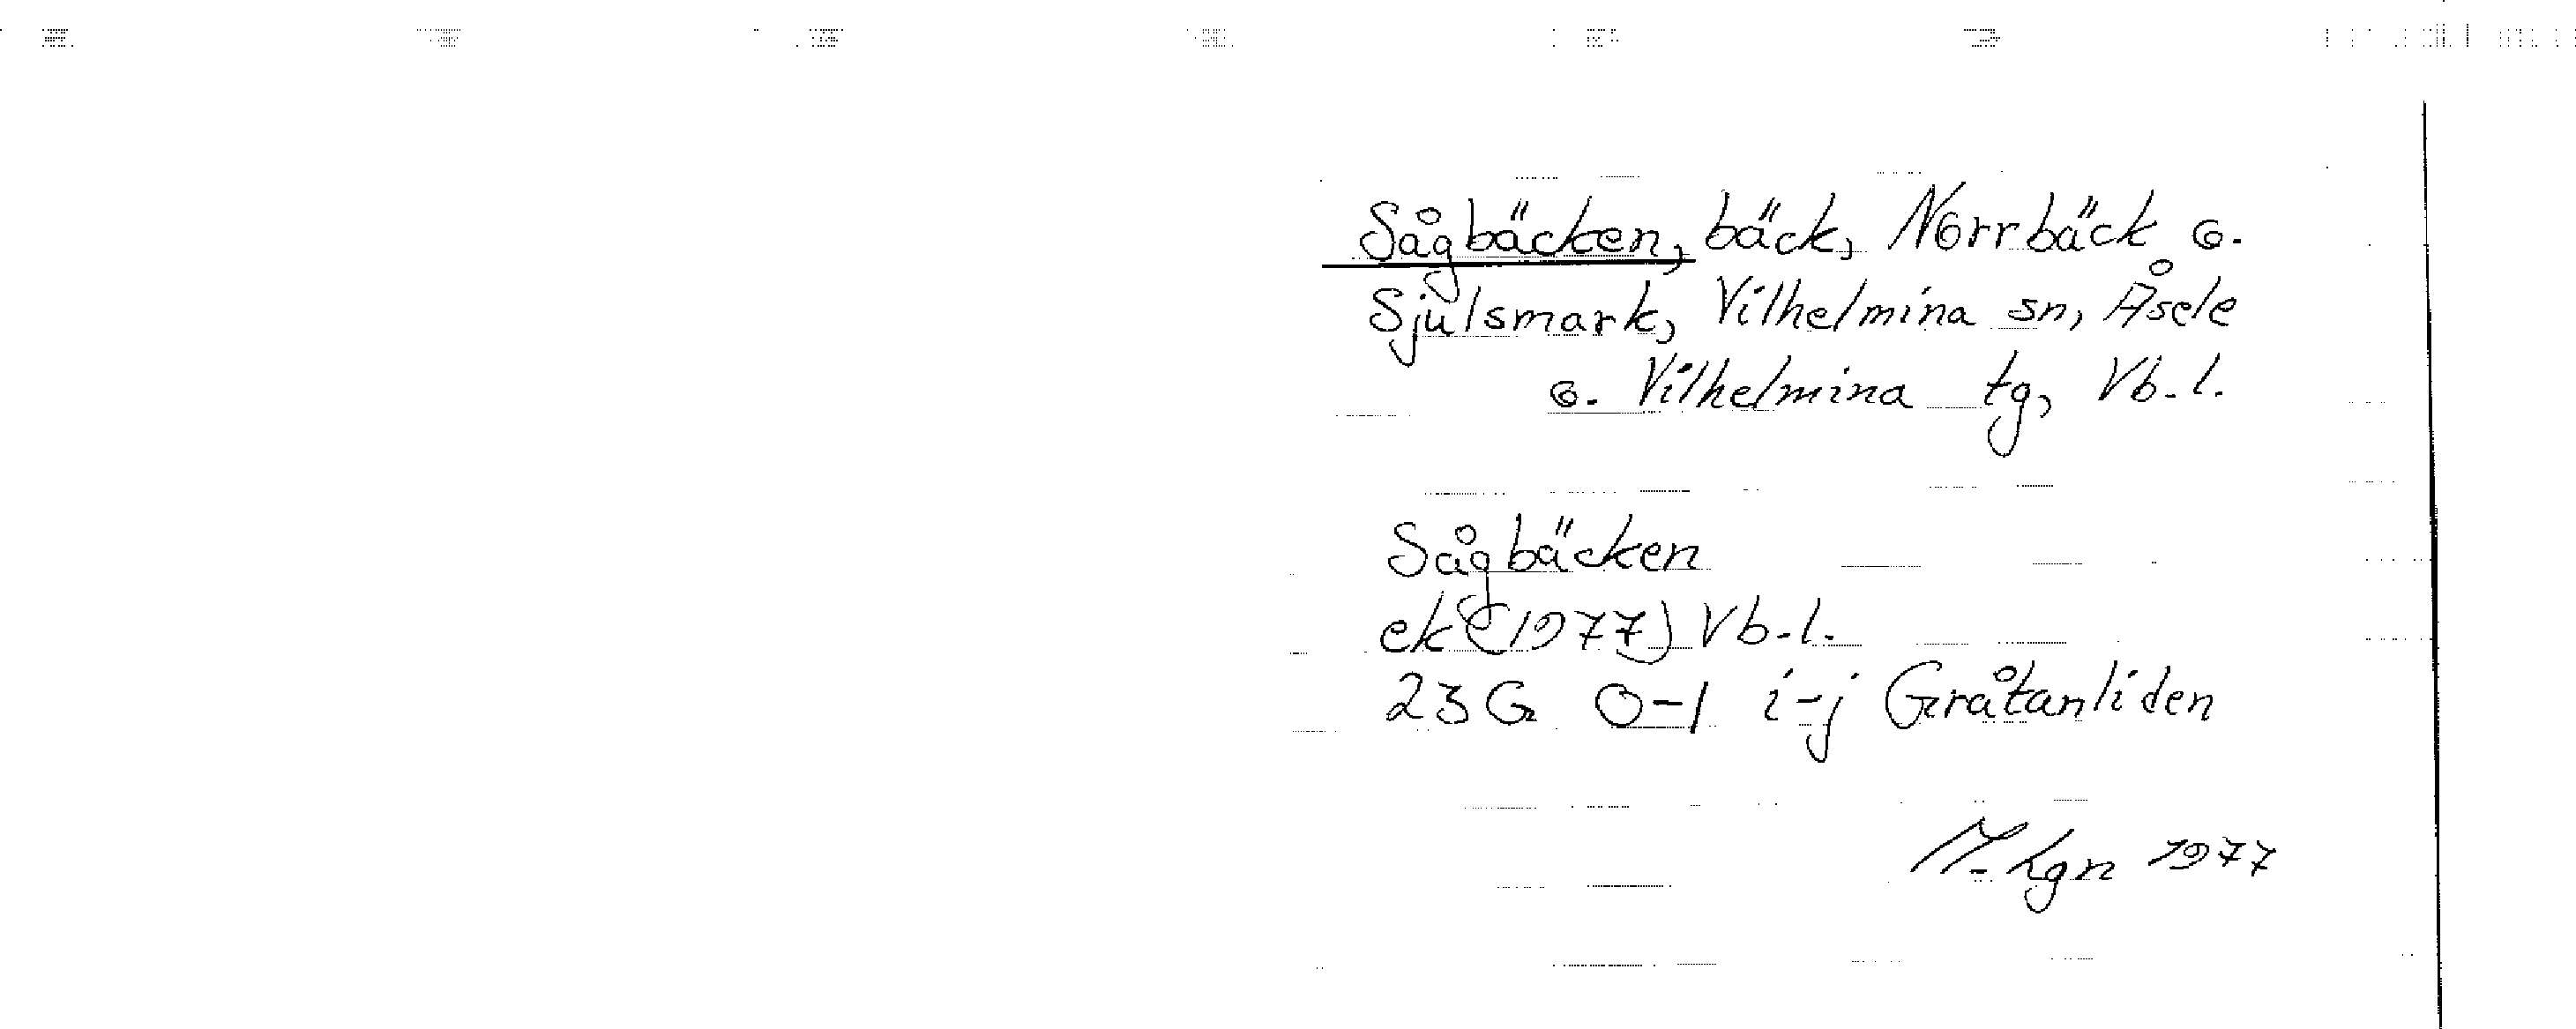 Sågbäcken, bäck, Norrbäck o.
Sjulsmark, Vilhelmina sn, Åsele
o. Vilhelmina tg, Vb. l.
Sågbäcken
ek (1977) Vb. l.
23 G 0-1 i-j Gråtanliden
M. Lgn 1977